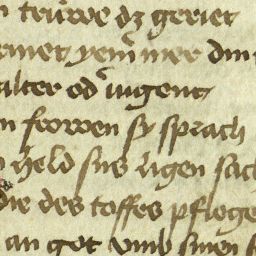 n trüwe dz geriet
yem̃ mer din
alter od̕ iugent
n frowen sy sprach
held sus ligen sach
die des toffes pflege
an got vmb sinen